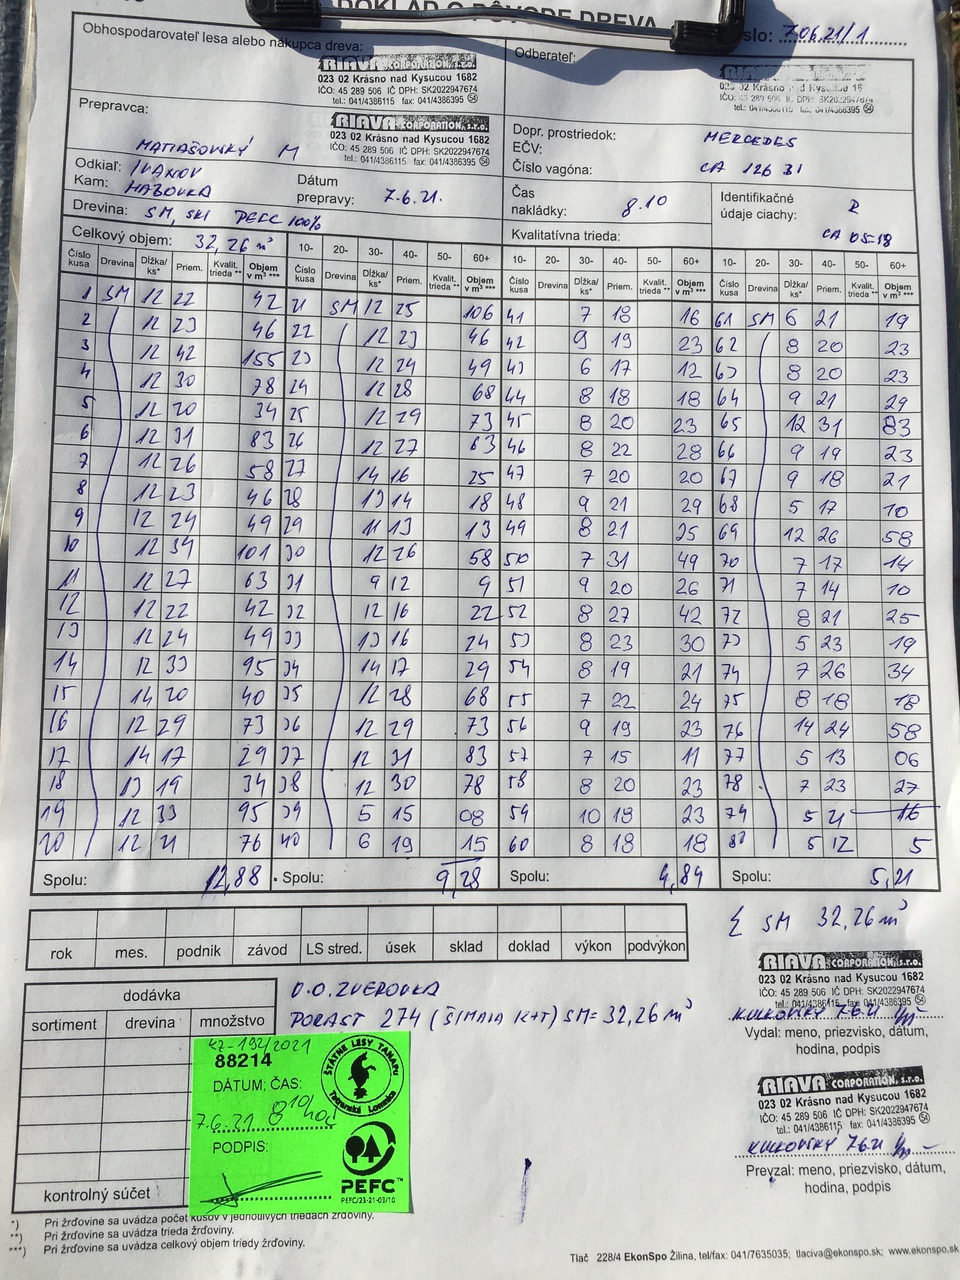 DOKLAD O PÔVODE DREVA
Číslo: 7.06.21/1
Obhospodarovateľ lesa alebo nákupca dreva:
RIAVA CORPORATION, s.r.o.
023 02 Krásno nad Kysucou 1682
IČO: 45 289 506 IČ DPH: SK2022947674
tel.: 041/4386115 fax: 041/4386395 54
Odberateľ:
RIAVA
023 02 Krásno nad Kysucou 16
Prepravca:
RIAVA CORPORATION, s.r.o.
023 02 Krásno nad Kysucou 1682
IČO: 45 289 506 IČ DPH: SK2022947674
tel.: 041/4386115 fax: 041/4386395 54
MATIAŠOVSKÝ M
Dopr. prostriedok: MERCEDES
EČV:
Číslo vagóna: CA 126 BI
Odkiaľ: IVANOV
Kam: HABOVKA
Dátum prepravy: 7.6.21.
Čas nakládky: 8.10
Identifikačné údaje ciachy: R
CA 05-18
Drevina: SM, SKI PEFC 100%
Kvalitatívna trieda:
Celkový objem: 32,26 m³
10- 20- 30- 40- 50- 60+ 10- 20- 30- 40- 50- 60+ 10- 20- 30- 40- 50- 60+
Číslo kusa Drevina Dĺžka/ ks* Priem. Kvalit. trieda ** Objem v m³ *** Číslo kusa Drevina Dĺžka/ ks* Priem. Kvalit. trieda ** Objem v m³ *** Číslo kusa Drevina Dĺžka/ ks* Priem. Kvalit. trieda ** Objem v m³ *** Číslo kusa Drevina Dĺžka/ ks* Priem. Kvalit. trieda ** Objem v m³ ***
1 SM 12 22 42 21 SM 12 25 106 41 7 18 16 61 SM 6 21 19
2 12 23 46 22 12 23 46 42 9 19 23 62 8 20 23
3 12 42 155 23 12 24 49 43 6 17 12 63 8 20 23
4 12 30 78 24 12 28 68 44 8 18 18 64 9 21 29
5 12 20 34 25 12 29 73 45 8 20 23 65 12 31 83
6 12 31 83 26 12 27 63 46 8 22 28 66 9 19 23
7 12 26 58 27 14 16 25 47 7 20 20 67 9 18 21
8 12 23 46 28 13 14 18 48 9 21 29 68 5 17 10
9 12 24 49 29 11 13 13 49 8 21 25 69 12 26 58
10 12 34 101 30 12 26 58 50 7 31 49 70 7 17 14
11 12 27 63 31 9 12 9 51 9 20 26 71 7 14 10
12 12 22 42 32 12 16 22 52 8 27 42 72 8 21 25
13 12 24 49 33 13 16 24 53 8 23 30 73 5 23 19
14 12 33 95 34 14 17 29 54 8 19 21 74 7 26 34
15 14 20 40 35 12 28 68 55 7 22 24 75 8 18 18
16 12 29 73 36 12 29 73 56 9 19 23 76 14 24 58
17 14 17 29 37 12 31 83 57 7 15 11 77 5 13 06
18 13 19 34 38 12 30 78 58 8 20 23 78 7 23 27
19 12 33 95 39 5 15 08 59 10 18 23 79 5 21 16
20 12 21 76 40 6 19 15 60 8 18 18 80 5 12 5
Spolu: 12,88 Spolu: 9,28 Spolu: 4,84 Spolu: 5,21
Σ SM 32,26 m³
rok mes. podnik závod LS stred. úsek sklad doklad výkon podvýkon
dodávka
sortiment drevina množstvo
kontrolný súčet
O.O. ZVEROVKA
PORAST 274 (ŠIMAIA K+T) SM = 32,26 m³
RIAVA CORPORATION, s.r.o.
023 02 Krásno nad Kysucou 1682
IČO: 45 289 506 IČ DPH: SK2022947674
tel.: 041/4386115 fax: 041/4386395 54
KULKOVSKÝ 7.6.21
Vydal: meno, priezvisko, dátum,
hodina, podpis
RIAVA CORPORATION, s.r.o.
023 02 Krásno nad Kysucou 1682
IČO: 45 289 506 IČ DPH: SK2022947674
tel.: 041/4386115 fax: 041/4386395 54
KULKOVSKÝ 7.6.21
Prevzal: meno, priezvisko, dátum,
hodina, podpis
KZ-192/2021
88214
DÁTUM; ČAS:
7.6.21 8¹⁰ hod
PODPIS:
ŠTÁTNE LESY TANAPU
Tatranská Lomnica
PEFC™
PEFC/23-21-03/10
*) Pri žrďovine sa uvádza počet kusov v jednotlivých triedach žrďoviny.
**) Pri žrďovine sa uvádza trieda žrďoviny.
***) Pri žrďovine sa uvádza celkový objem triedy žrďoviny.
Tlač 228/4 EkonSpo Žilina, tel/fax: 041/7635035; tlaciva@ekonspo.sk; www.ekonspo.sk